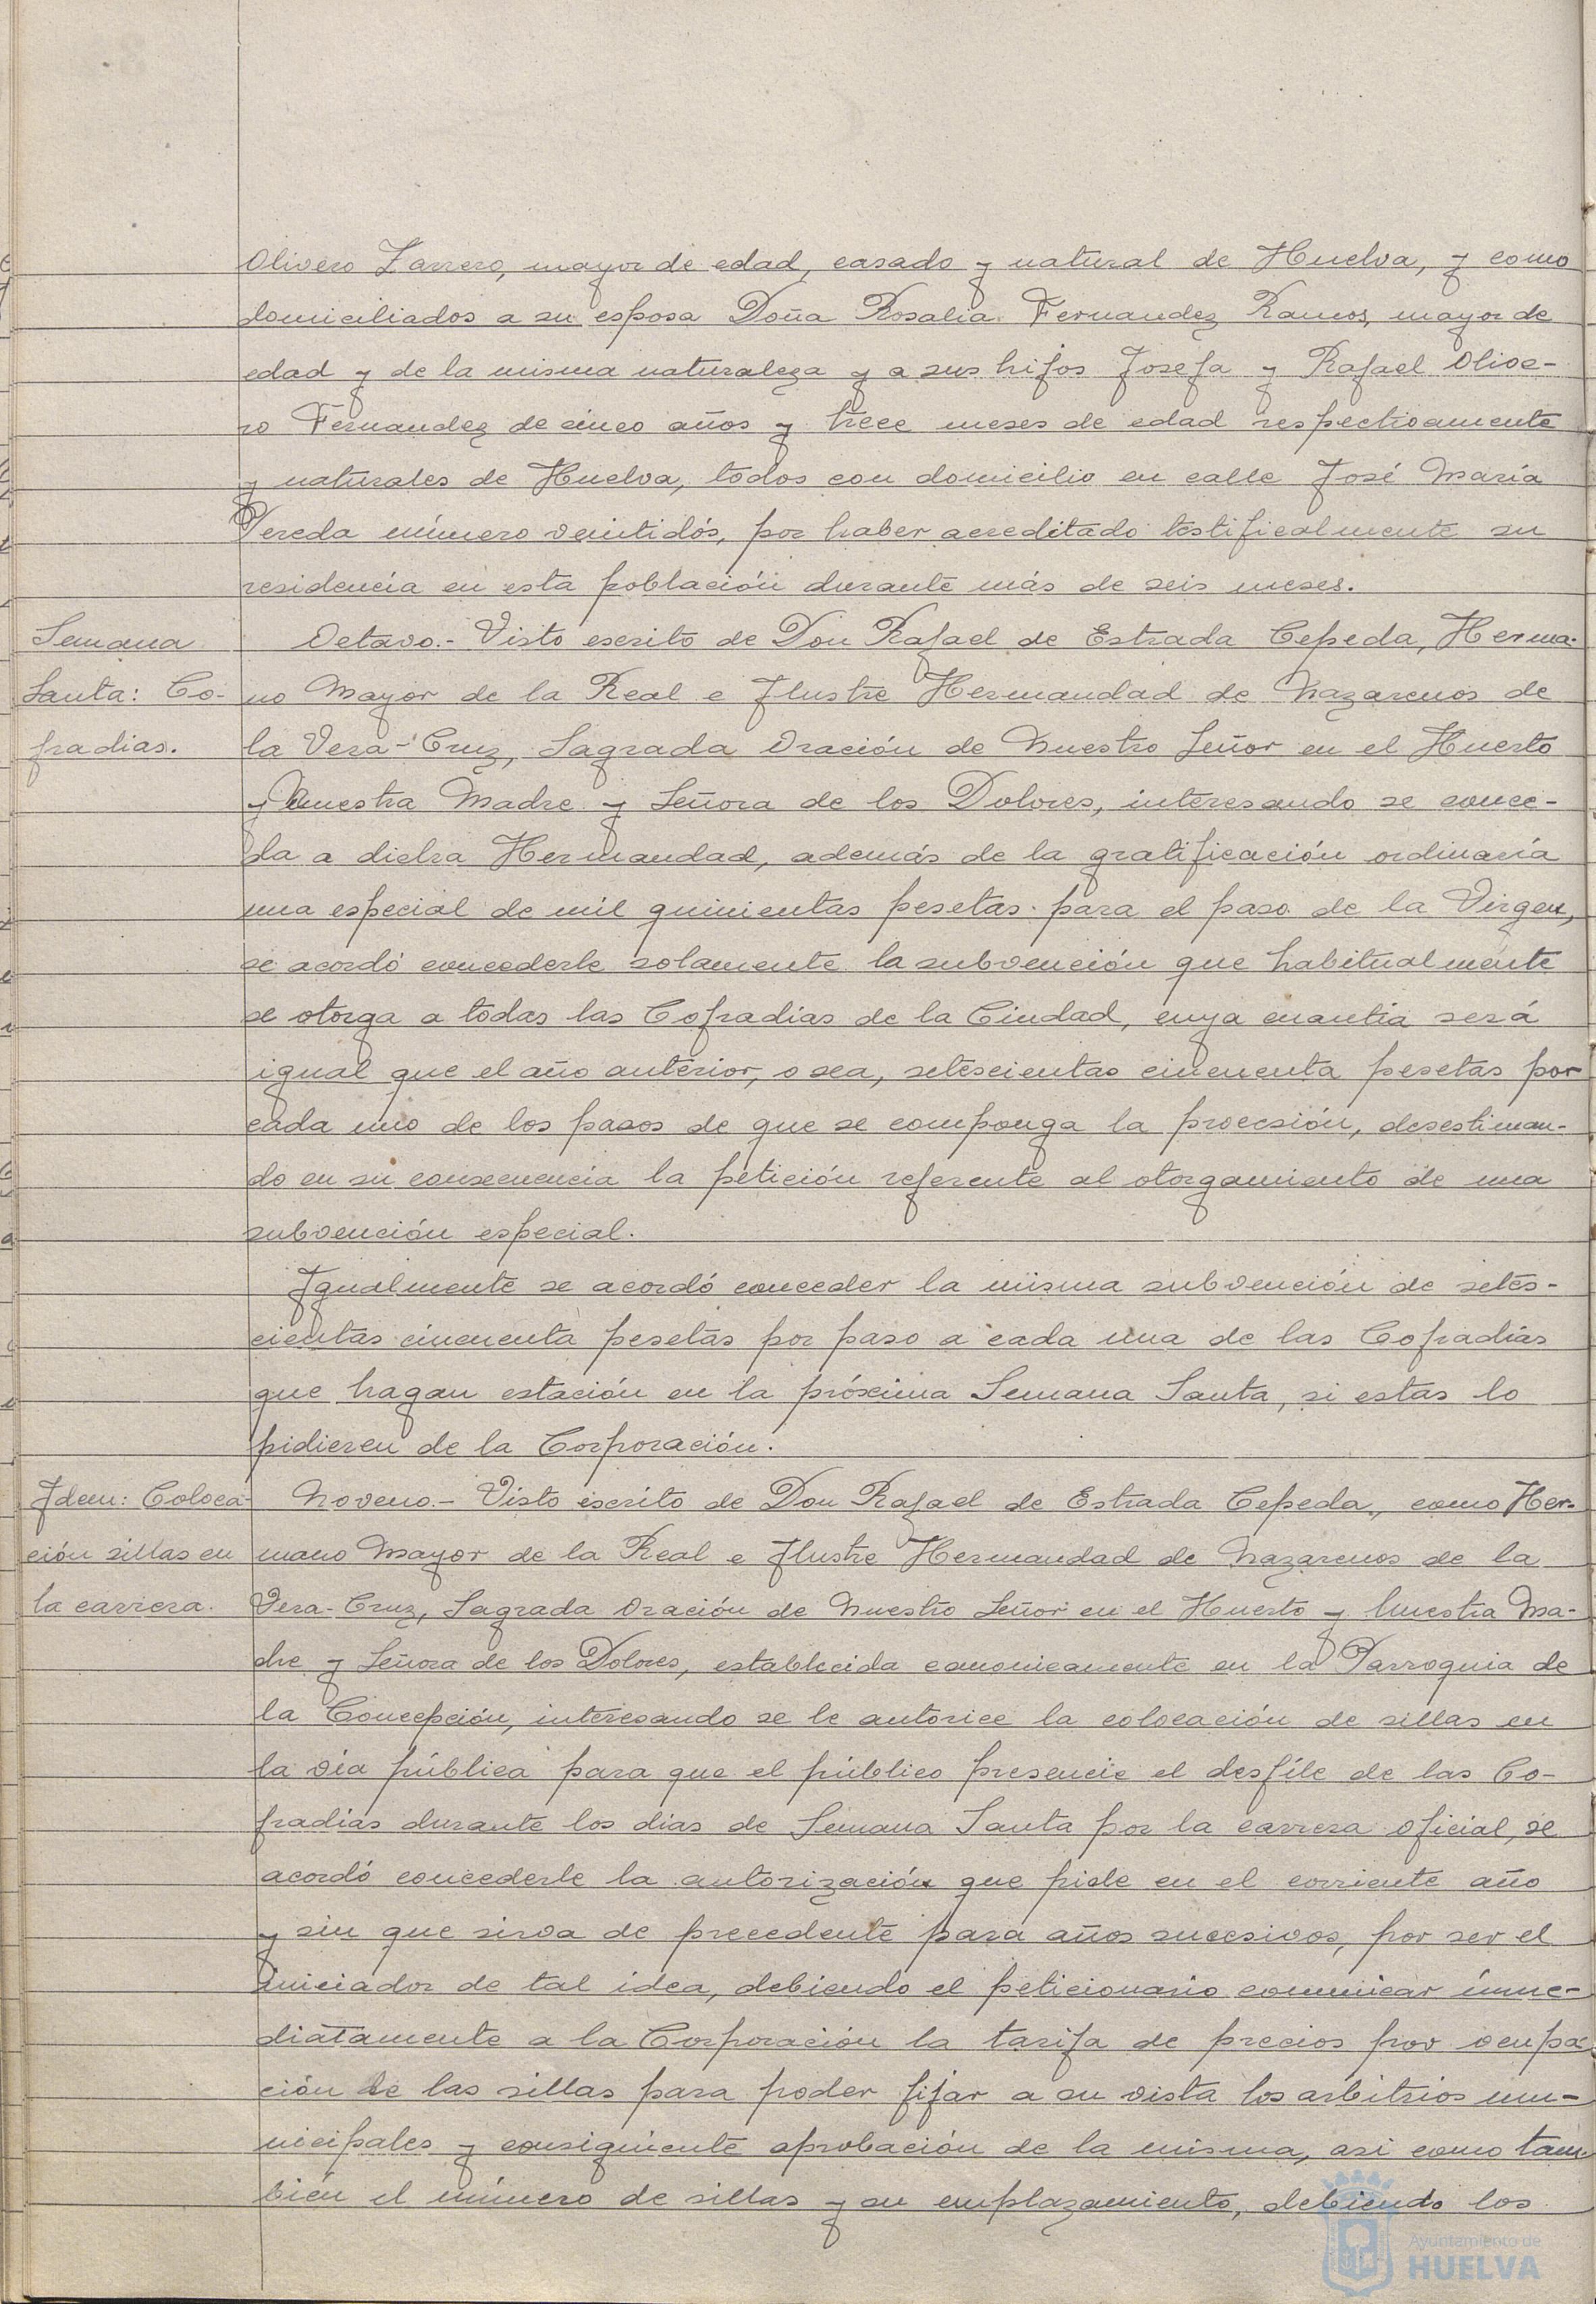 Olivero Zarrero, mayor de edad, casado y natural de Huelva, y como
domiciliados a su esposa Doña Rosalia Fernandez Ramos, mayor de
edad y de la misma naturaleza y a sus hijos Josefa y Rafael Olive-
ro Fernandez de cinco años y trece meses de edad respectivamente
y naturales de Huelva, todos con domicilio en calle José María
Pereda número veintidós, por haber acreditado testificalmente su
residencia en esta población durante más de seis meses.
Semana
Santa: Co-
fradias.
Octavo.- Visto escrito de Don Rafael de Estrada Cepeda, Herma-
no Mayor de la Real e Ilustre Hermandad de Nazarenos de
la Vera-Cruz, Sagrada Oración de Nuestro Señor en el Huerto
y Nuestra Madre y Señora de los Dolores, interesando se conce-
da a dicha Hermandad, además de la gratificación ordinaria
una especial de mil quinientas pesetas para el paso de la Virgen,
se acordó concederle solamente la subvención que habitualmente
se otorga a todas las Cofradías de la Ciudad, cuya cuantía será
igual que el año anterior, o sea, setescientas cincuenta pesetas por
cada uno de los pasos de que se componga la procesión, desestiman-
do en su consecuencia la petición referente al otorgamiento de una
subvención especial.
Igualmente se acordó conceder la misma subvención de setes-
cientas cincuenta pesetas por paso a cada una de las Cofradías
que hagan estación en la próxima Semana Santa, si estas lo
pidieren de la Corporación.
Idem: Coloca-
ción sillas en
la carrera.
Noveno.- Visto escrito de Don Rafael de Estrada Cepeda, como Her-
mano Mayor de la Real e Ilustre Hermandad de Nazarenos de la
Vera-Cruz, Sagrada Oración de Nuestro Señor en el Huerto y Nuestra Ma-
dre y Señora de los Dolores, establecida canonicamente en la Parroquia de
la Concepción, interesando se le autorice la colocación de sillas en
la vía pública para que el público presencie el desfile de las Co-
fradías durante los dias de Semana Santa por la carrera oficial, se
acordó concederle la autorización que pide en el corriente año
y sin que sirva de precedente para años sucesivos, por ser el
iniciador de tal idea, debiendo el peticionario comunicar inme-
diatamente a la Corporación la tarifa de precios por ocupa
ción de las sillas para poder fijar a su vista los arbitrios mu-
nicipales y consiguiente aprobación de la misma, asi como tam
bién el número de sillas y su emplazamiento, debiendo los
Ayuntamiento de
HUELVA